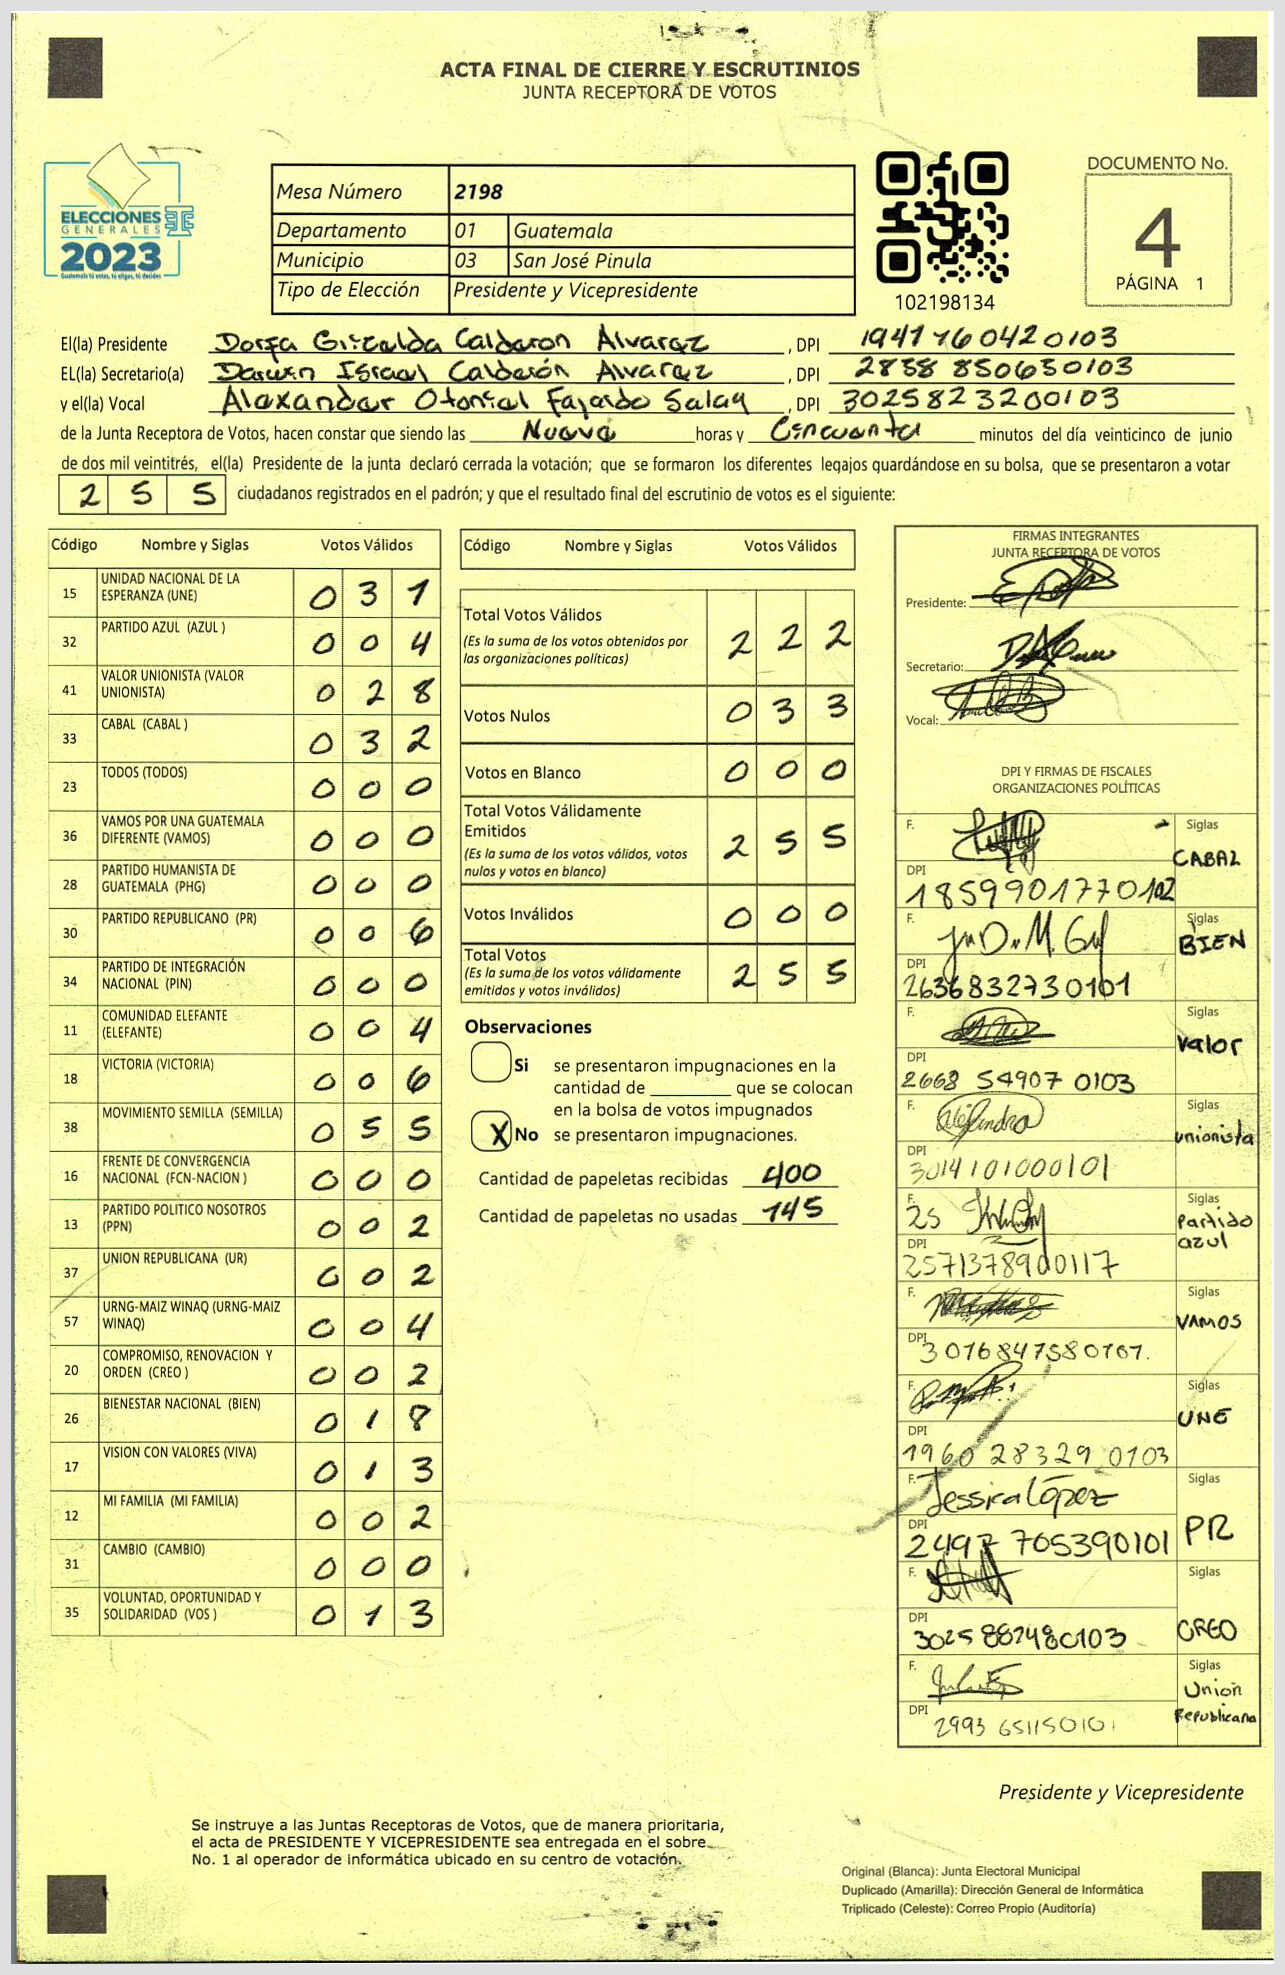 ACTA FINAL DE CIERRE Y ESCRUTINIOS
JUNTA RECEPTORA DE VOTOS
ELECCIONES
GENERALES
2023
Guatemala tú votas, tú eliges, tú decides
Mesa Número 2198
Departamento 01 Guatemala
Municipio 03 San José Pinula
Tipo de Elección Presidente y Vicepresidente
102198134
DOCUMENTO No.
4
PÁGINA 1
El(la) Presidente Calderon Alvarez, DPI 1941760420103
EL(la) Secretario(a) Darwin Israel Calderón Alvarez, DPI 2838 850650103
y el(la) Vocal Alexander Otoniel Fajardo Salay, DPI 3025823200103
de la Junta Receptora de Votos, hacen constar que siendo las Nueve horas y Cincuenta minutos del día veinticinco de junio
de dos mil veintitrés, el(la) Presidente de la junta declaró cerrada la votación; que se formaron los diferentes legajos guardándose en su bolsa, que se presentaron a votar
2 5 5 ciudadanos registrados en el padrón; y que el resultado final del escrutinio de votos es el siguiente:
Código Nombre y Siglas Votos Válidos
15 UNIDAD NACIONAL DE LA ESPERANZA (UNE) 0 3 1
32 PARTIDO AZUL (AZUL ) 0 0 4
41 VALOR UNIONISTA (VALOR UNIONISTA) 0 2 8
33 CABAL (CABAL ) 0 3 2
23 TODOS (TODOS) 0 0 0
36 VAMOS POR UNA GUATEMALA DIFERENTE (VAMOS) 0 0 0
28 PARTIDO HUMANISTA DE GUATEMALA (PHG) 0 0 0
30 PARTIDO REPUBLICANO (PR) 0 0 6
34 PARTIDO DE INTEGRACIÓN NACIONAL (PIN) 0 0 0
11 COMUNIDAD ELEFANTE (ELEFANTE) 0 0 4
18 VICTORIA (VICTORIA) 0 0 6
38 MOVIMIENTO SEMILLA (SEMILLA) 0 5 5
16 FRENTE DE CONVERGENCIA NACIONAL (FCN-NACION ) 0 0 0
13 PARTIDO POLITICO NOSOTROS (PPN) 0 0 2
37 UNION REPUBLICANA (UR) 0 0 2
57 URNG-MAIZ WINAQ (URNG-MAIZ WINAQ) 0 0 4
20 COMPROMISO, RENOVACION Y ORDEN (CREO ) 0 0 2
26 BIENESTAR NACIONAL (BIEN) 0 1 8
17 VISION CON VALORES (VIVA) 0 1 3
12 MI FAMILIA (MI FAMILIA) 0 0 2
31 CAMBIO (CAMBIO) 0 0 0
35 VOLUNTAD, OPORTUNIDAD Y SOLIDARIDAD (VOS ) 0 1 3
Código Nombre y Siglas Votos Válidos
Total Votos Válidos 2 2 2
(Es la suma de los votos obtenidos por
las organizaciones políticas)
Votos Nulos 0 3 3
Votos en Blanco 0 0 0
Total Votos Válidamente
Emitidos 2 5 5
(Es la suma de los votos válidos, votos
nulos y votos en blanco)
Votos Inválidos 0 0 0
Total Votos 2 5 5
(Es la suma de los votos válidamente
emitidos y votos inválidos)
Observaciones
Si se presentaron impugnaciones en la
cantidad de ________ que se colocan
en la bolsa de votos impugnados
X No se presentaron impugnaciones.
Cantidad de papeletas recibidas 400
Cantidad de papeletas no usadas 145
FIRMAS INTEGRANTES
JUNTA RECEPTORA DE VOTOS
Presidente:
Secretario:
Vocal:
DPI Y FIRMAS DE FISCALES
ORGANIZACIONES POLÍTICAS
F. Siglas CABAL
DPI 1859901770102
F. Siglas BIEN
DPI 2636832730101
F. Siglas Valor
DPI 2668 54907 0103
F. Alejandra Siglas unionista
DPI 3014101000101
F. Siglas Partido azul
DPI 2571378900117
F. Siglas VAMOS
DPI
F. Siglas UNE
DPI 1960 28329 0103
F. Jessica López Siglas PR
DPI 2497 705390101
F. Siglas CREO
DPI
F. Siglas Union Republicana
DPI 2993 651150101
Presidente y Vicepresidente
Se instruye a las Juntas Receptoras de Votos, que de manera prioritaria,
el acta de PRESIDENTE Y VICEPRESIDENTE sea entregada en el sobre
No. 1 al operador de informática ubicado en su centro de votación.
Original (Blanca): Junta Electoral Municipal
Duplicado (Amarilla): Dirección General de Informática
Triplicado (Celeste): Correo Propio (Auditoría)